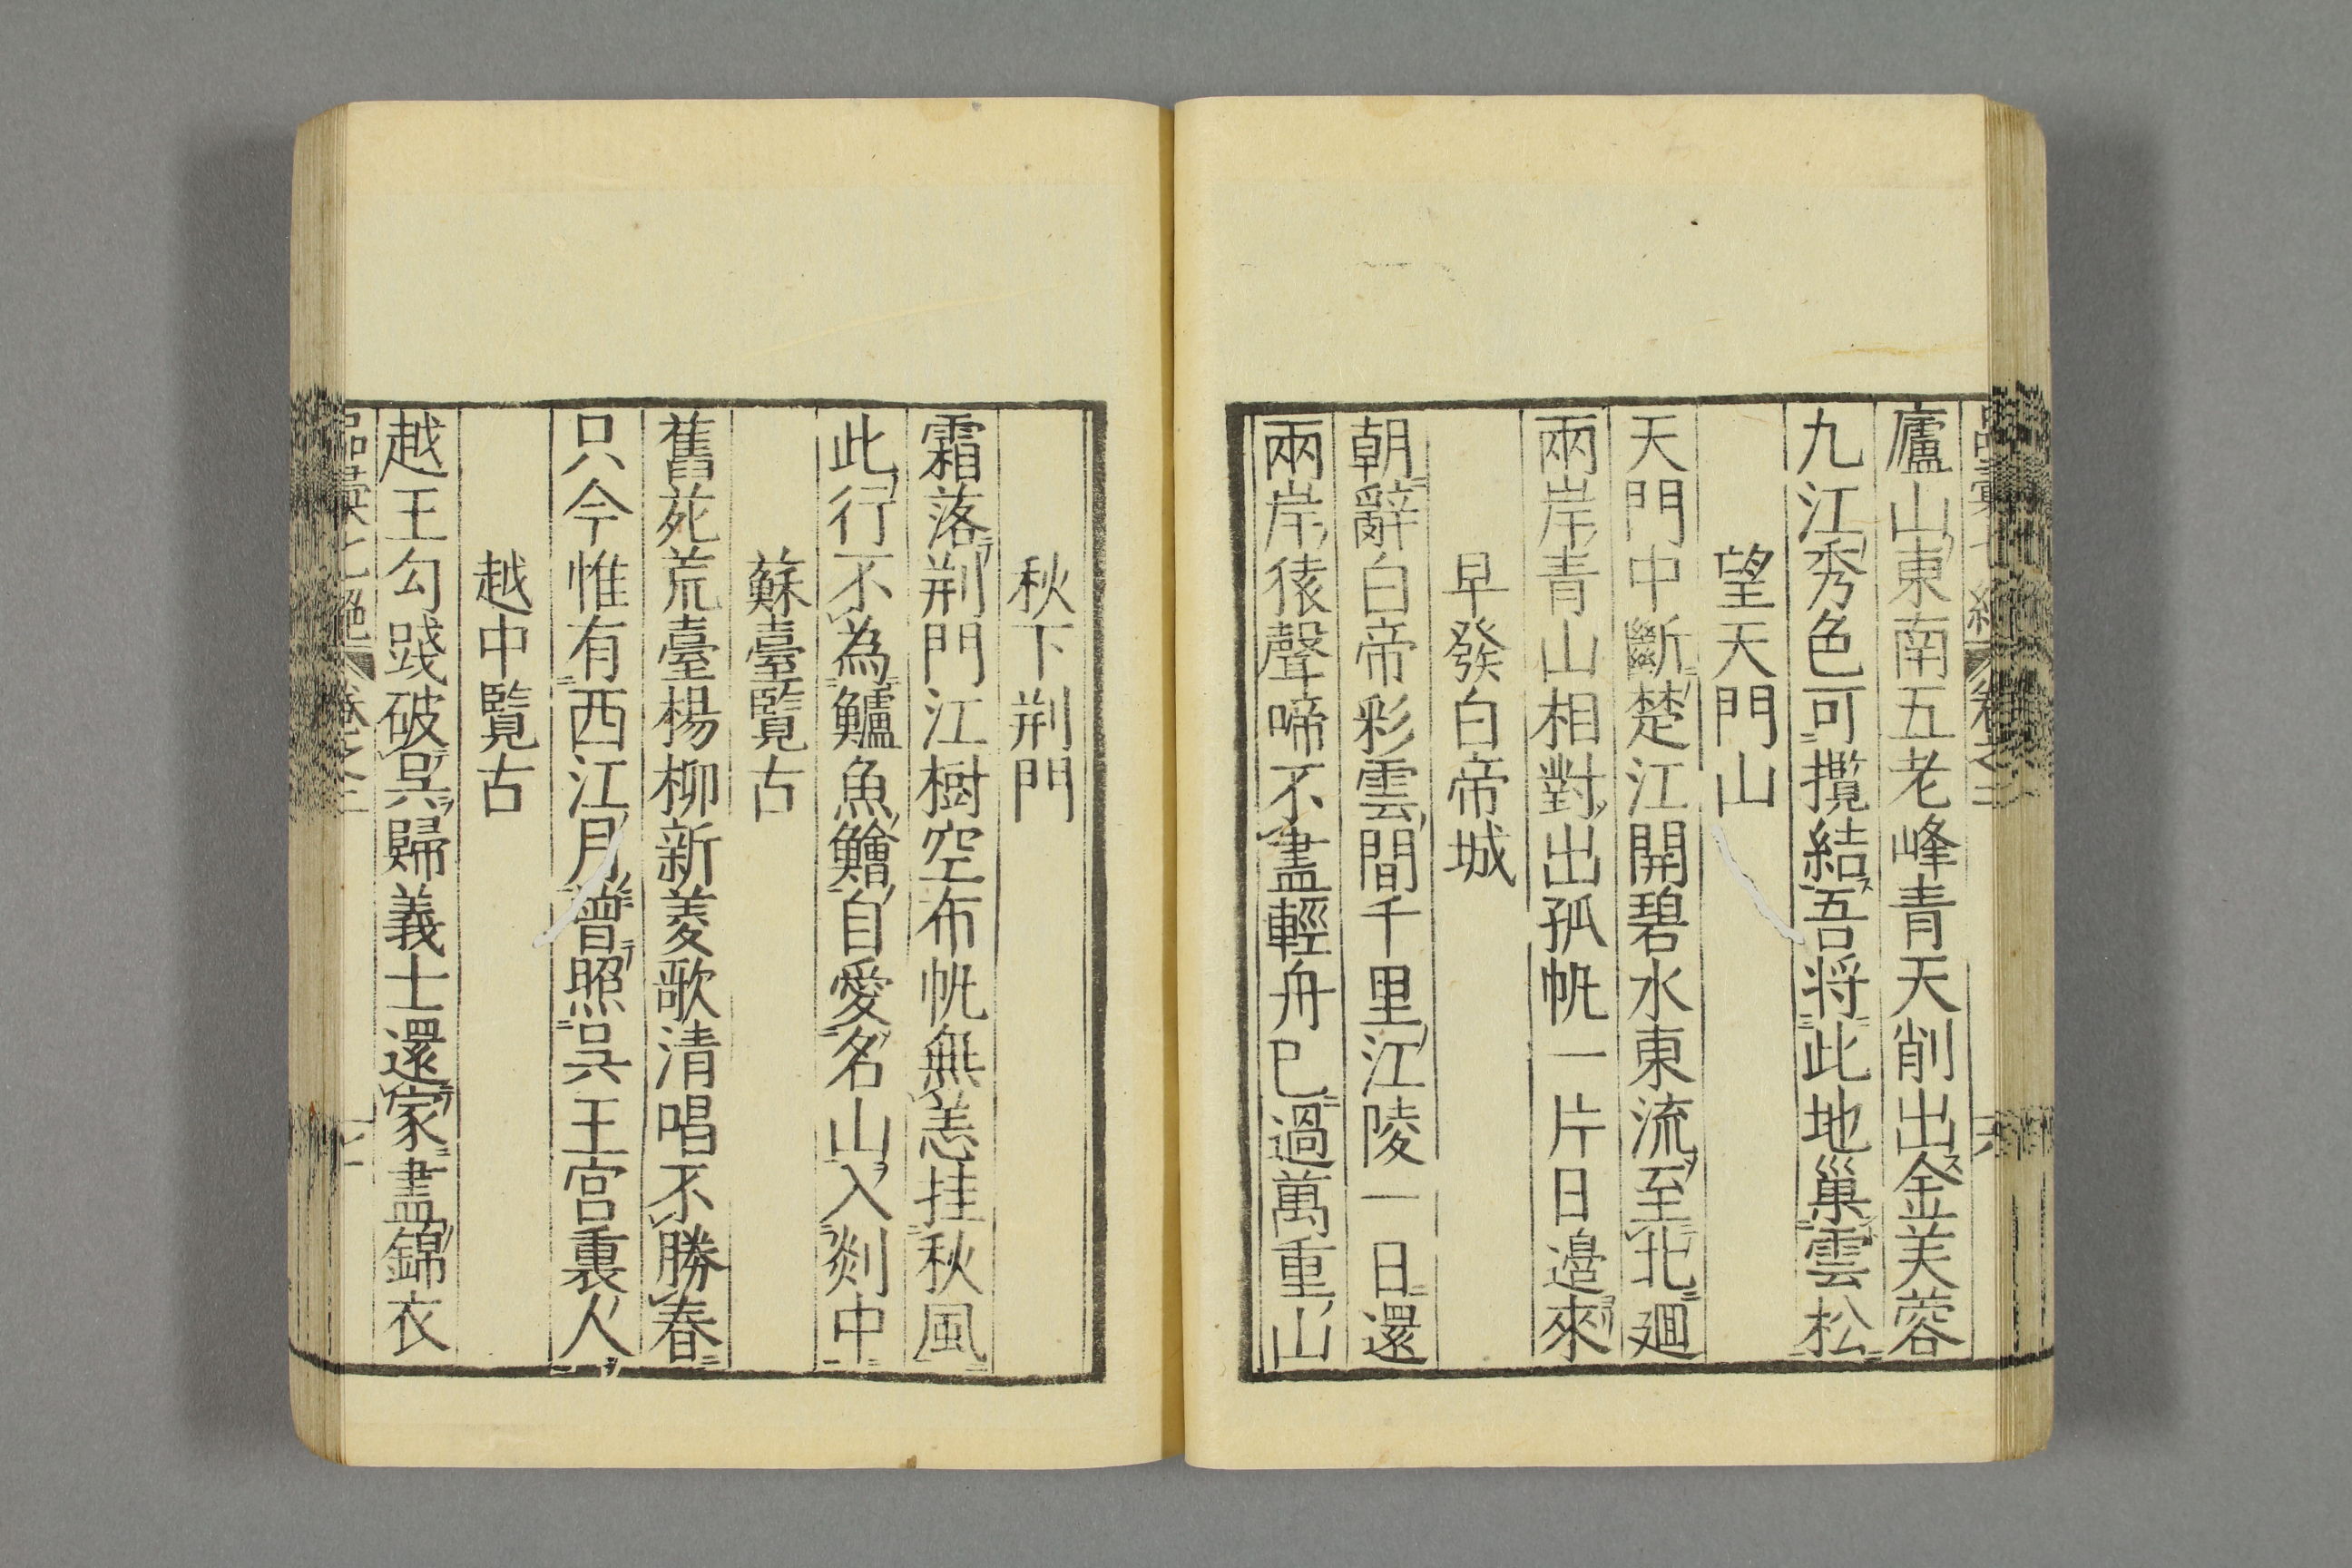 廬山東南五老峰青天削出金芙蓉
九江秀色可攬結吾将此地巢雲松
望天門山
天門中斷楚江開碧水東流至北廻
兩岸青山相對出孤帆一片日邉來
早發白帝城
朝辭白帝彩雲間千里江陵一日還
兩岸猿聲啼不盡輕舟已過萬重山
秋下荆門
霜落荆門江樹空布帆無恙挂秋風
此行不為鱸魚鱠自愛名山入剡中
蘇臺覽古
舊苑荒臺楊柳新菱歌清唱不勝春
只今惟有西江月曾照吳王宮裏人
越中覽古
越王勾踐破吳歸義士還家盡錦衣